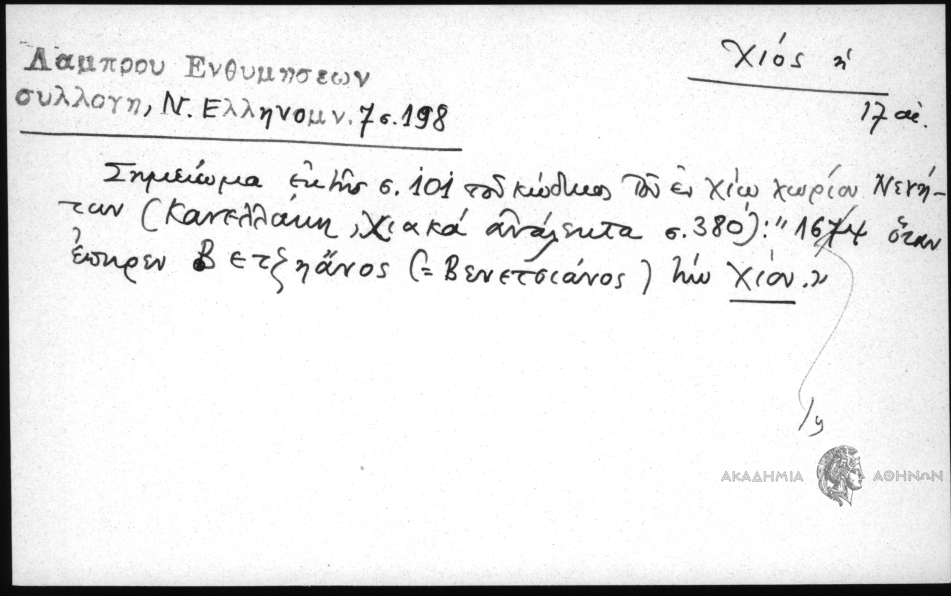 Λάμπρου Ενθυμησεων
συλλογη, Ν. Ελληνομν. 7 σ. 198
Χιός ἡ
17 αἰ.
Σημείωμα ἐκ τῆς σ. 101 τοῦ κώδικος τοῦ ἐν Χίῳ χωρίου Νενή-
των (Κανελλάκη, Χιακά ἀνάλεκτα σ. 380): "1674 ὅταν
ἔπηρεν Βετζηᾶνος (= Βενετσιάνος) τὴν Χίον."
ΑΚΑΔΗΜΙΑ ΑΘΗΝΩΝ